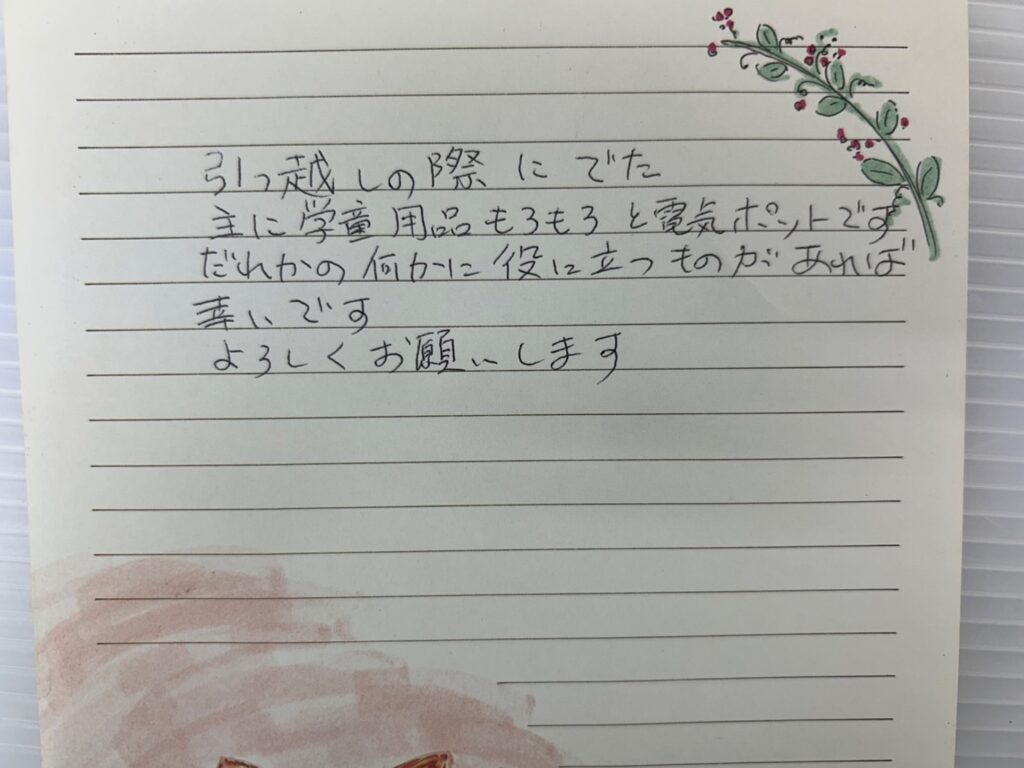 引っ越しの際にでた
主に学童用品もろもろと電気ポットです
だれかの何かに役に立つものがあれば
幸いです
よろしくお願いします